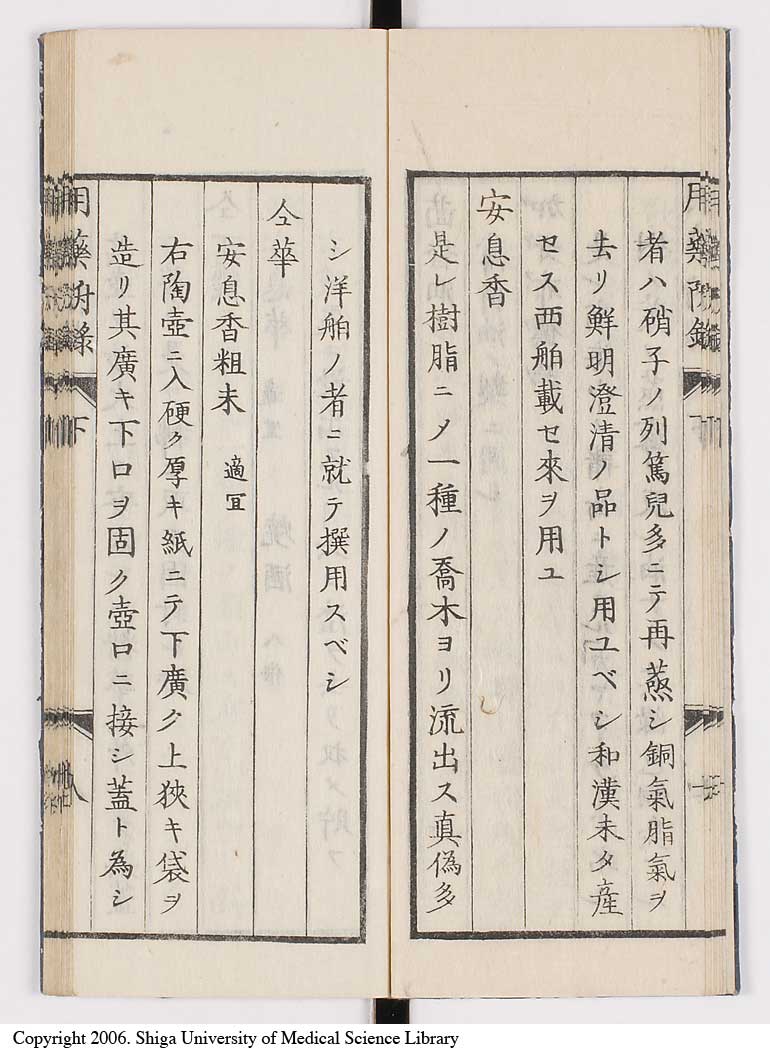 用藥附録
者ハ硝子ノ列篤兒多ニテ再蒸シ銅氣脂氣ヲ
去リ鮮明澄清ノ品トシ用ユベシ和漢未タ産
セス西舶載セ來ヲ用ユ
安息香
是レ樹脂ニメ一種ノ喬木ヨリ流出ス真僞多
シ洋舶ノ者ニ就テ撰用スベシ
仝華
安息香粗末 適冝
右陶壺ニ入硬ク厚キ紙ニテ下廣ク上狹キ袋ヲ
造リ其廣キ下口ヲ固ク壺口ニ接シ蓋ト為シ
用藥附錄 下
Copyright 2006. Shiga University of Medical Science Library